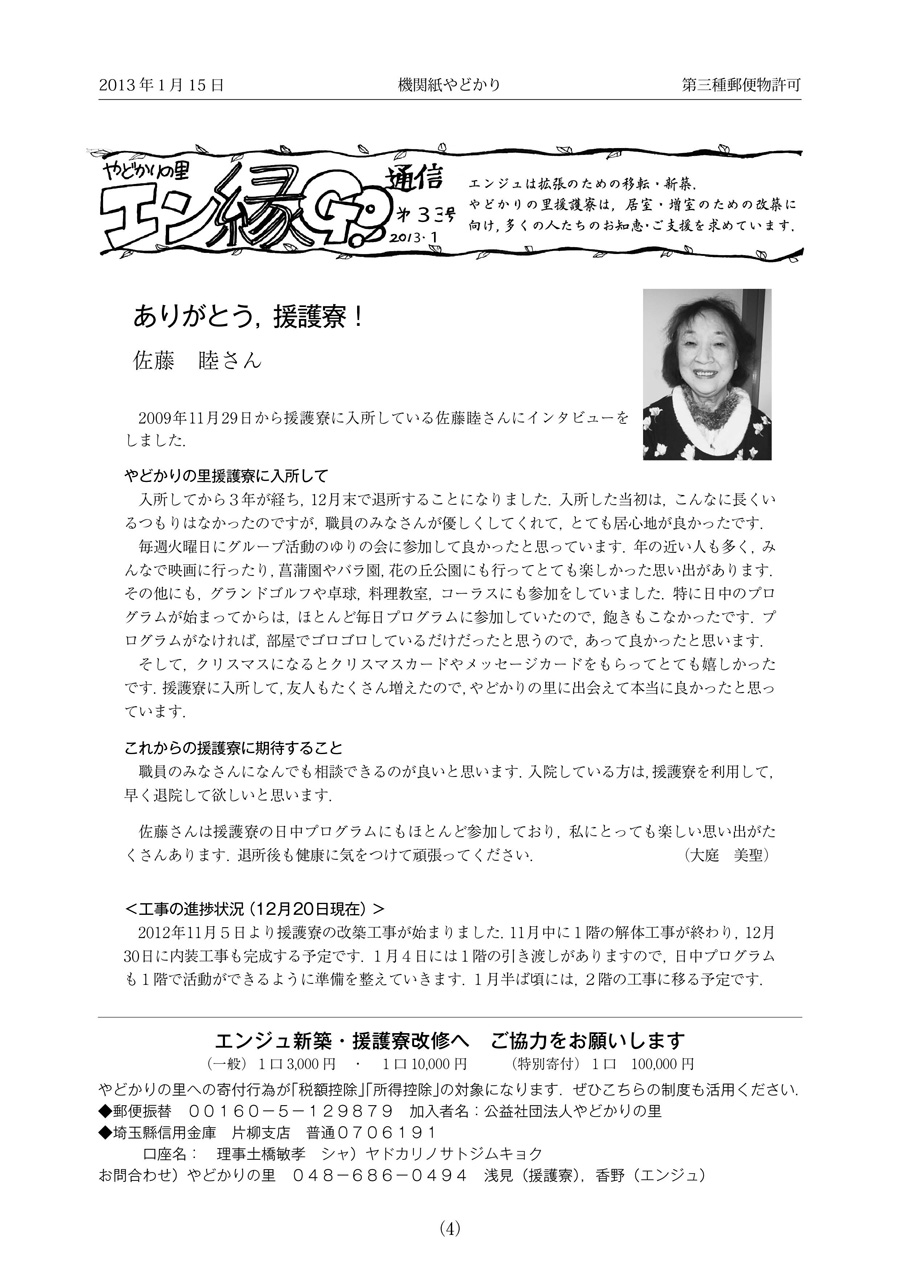 2013年1月15日 機関紙やどかり 第三種郵便物許可
やどかりの里
エン縁GO
通信
第33号
2013・1
エンジュは拡張のための移転・新築.
やどかりの里援護寮は, 居室・増室のための改築に
向け, 多くの人たちのお知恵・ご支援を求めています.
ありがとう, 援護寮！
佐藤　睦さん
2009年11月29日から援護寮に入所している佐藤睦さんにインタビューを
しました.
やどかりの里援護寮に入所して
入所してから３年が経ち, 12月末で退所することになりました. 入所した当初は, こんなに長くい
るつもりはなかったのですが, 職員のみなさんが優しくしてくれて, とても居心地が良かったです.
毎週火曜日にグループ活動のゆりの会に参加して良かったと思っています. 年の近い人も多く, み
んなで映画に行ったり, 菖蒲園やバラ園, 花の丘公園にも行ってとても楽しかった思い出があります.
その他にも, グランドゴルフや卓球, 料理教室, コーラスにも参加をしていました. 特に日中のプロ
グラムが始まってからは, ほとんど毎日プログラムに参加していたので, 飽きもこなかったです. プ
ログラムがなければ, 部屋でゴロゴロしているだけだったと思うので, あって良かったと思います.
そして, クリスマスになるとクリスマスカードやメッセージカードをもらってとても嬉しかった
です. 援護寮に入所して, 友人もたくさん増えたので, やどかりの里に出会えて本当に良かったと思っ
ています.
これからの援護寮に期待すること
職員のみなさんになんでも相談できるのが良いと思います. 入院している方は, 援護寮を利用して,
早く退院して欲しいと思います.
佐藤さんは援護寮の日中プログラムにもほとんど参加しており, 私にとっても楽しい思い出がた
くさんあります. 退所後も健康に気をつけて頑張ってください. （大庭　美聖）
＜工事の進捗状況（12月20日現在）＞
2012年11月５日より援護寮の改築工事が始まりました. 11月中に１階の解体工事が終わり, 12月
30日に内装工事も完成する予定です. １月４日には１階の引き渡しがありますので, 日中プログラム
も１階で活動ができるように準備を整えていきます. １月半ば頃には, ２階の工事に移る予定です.
エンジュ新築・援護寮改修へ　ご協力をお願いします
（一般）１口 3,000 円　・　１口 10,000 円　　（特別寄付）１口　100,000 円
やどかりの里への寄付行為が｢税額控除｣｢所得控除｣の対象になります. ぜひこちらの制度も活用ください.
◆郵便振替　００１６０－５－１２９８７９　加入者名：公益社団法人やどかりの里
◆埼玉縣信用金庫　片柳支店　普通０７０６１９１
口座名：　理事土橋敏孝　シャ）ヤドカリノサトジムキョク
お問合わせ）やどかりの里　０４８－６８６－０４９４　浅見（援護寮）, 香野（エンジュ）
（4）